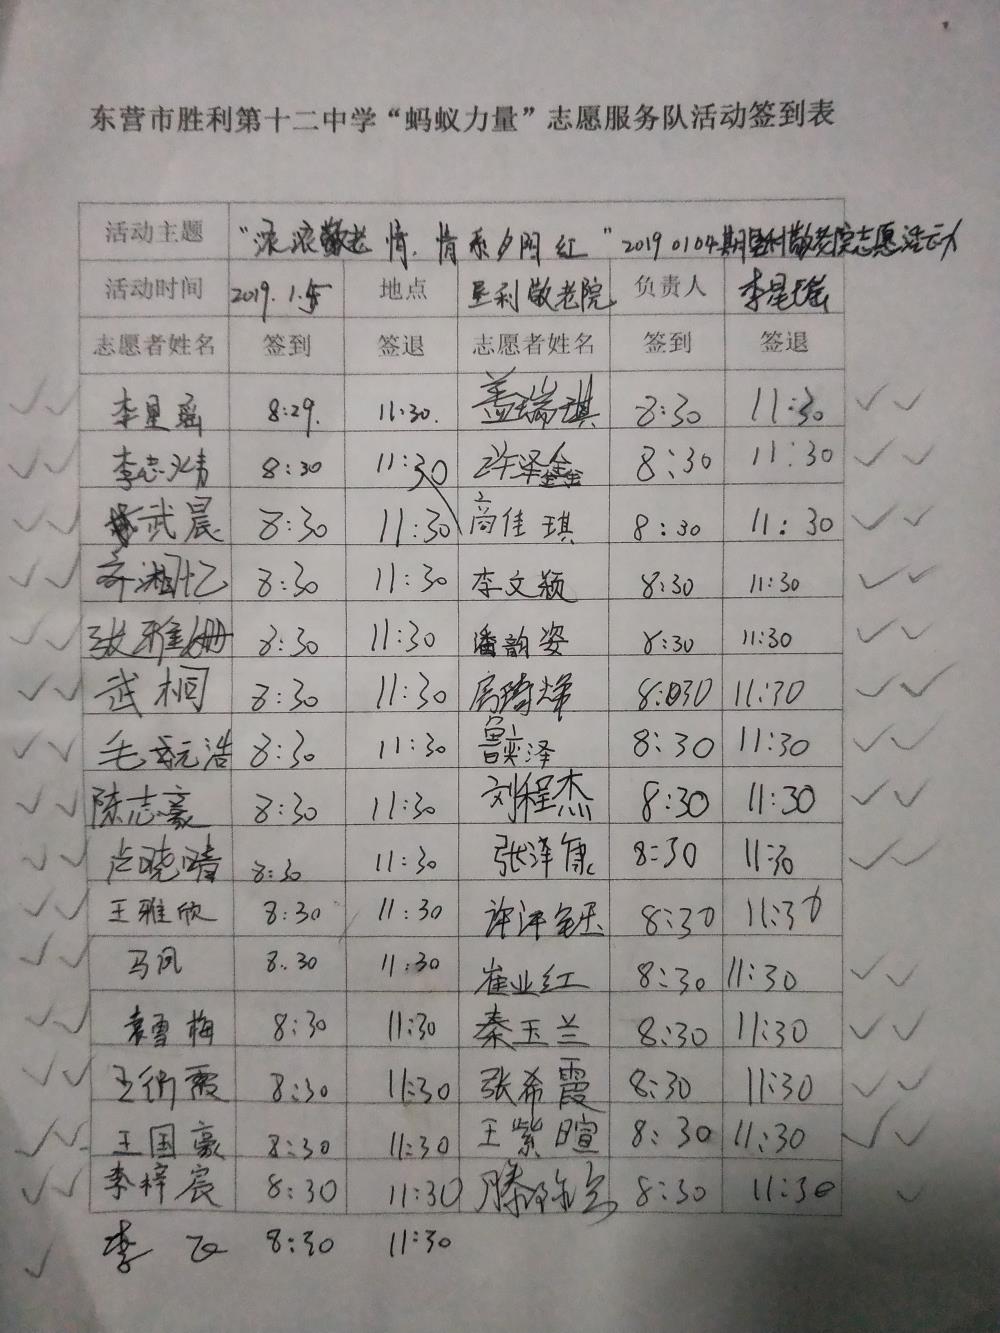 东营市胜利第十二中学“蚂蚁力量”志愿服务队活动签到表
活动主题 “浓浓敬老情,情系夕阳红”20190104期垦利敬老院志愿活动
活动时间 2019.1.5 地点 垦利敬老院 负责人 李星瑶
志愿者姓名 签到 签退 志愿者姓名 签到 签退
李星瑶 8:29. 11:30. 盖瑞琪 8:30 11:30
李志炜 8:30 11:30 许泽鑫 8:30 11:30
武晨 8:30 11:30 高佳琪 8:30 11:30
齐湘忆 8:30 11:30 李文颖 8:30 11:30
张雅姗 8:30 11:30 潘韵姿 8:30 11:30
武桐 8:30 11:30 8:30 11:30
毛浩 8:30 11:30 鲁奕泽 8:30 11:30
陈志豪 8:30 11:30 刘程杰 8:30 11:30
卢晓晴 8:30 11:30 张泽康 8:30 11:30
王雅欣 8:30 11:30 许泽钰 8:30 11:30
马凤 8:30 11:30 崔业红 8:30 11:30
袁雪梅 8:30 11:30 秦玉兰 8:30 11:30
王霞 8:30 11:30 张希霞 8:30 11:30
王国豪 8:30 11:30 王紫暄 8:30 11:30
李梓宸 8:30 11:30 滕 8:30 11:30
李飞 8:30 11:30